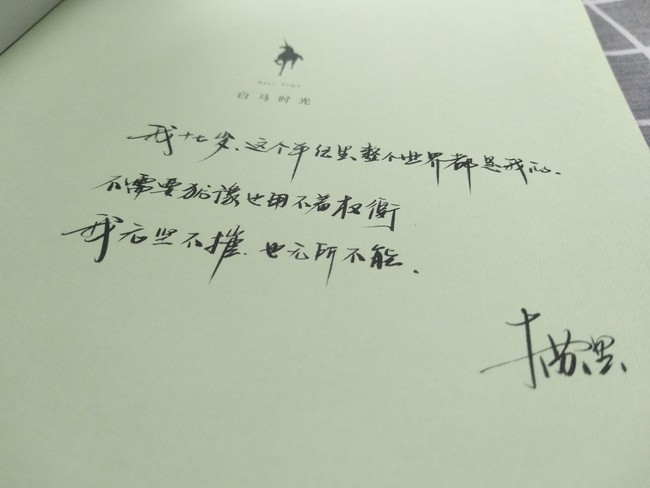 Best Time
白马时光
我十七岁、这个年纪里整个世界都是我的.
不需要犹豫也用不着权衡
我无坚不摧.也无所不能.